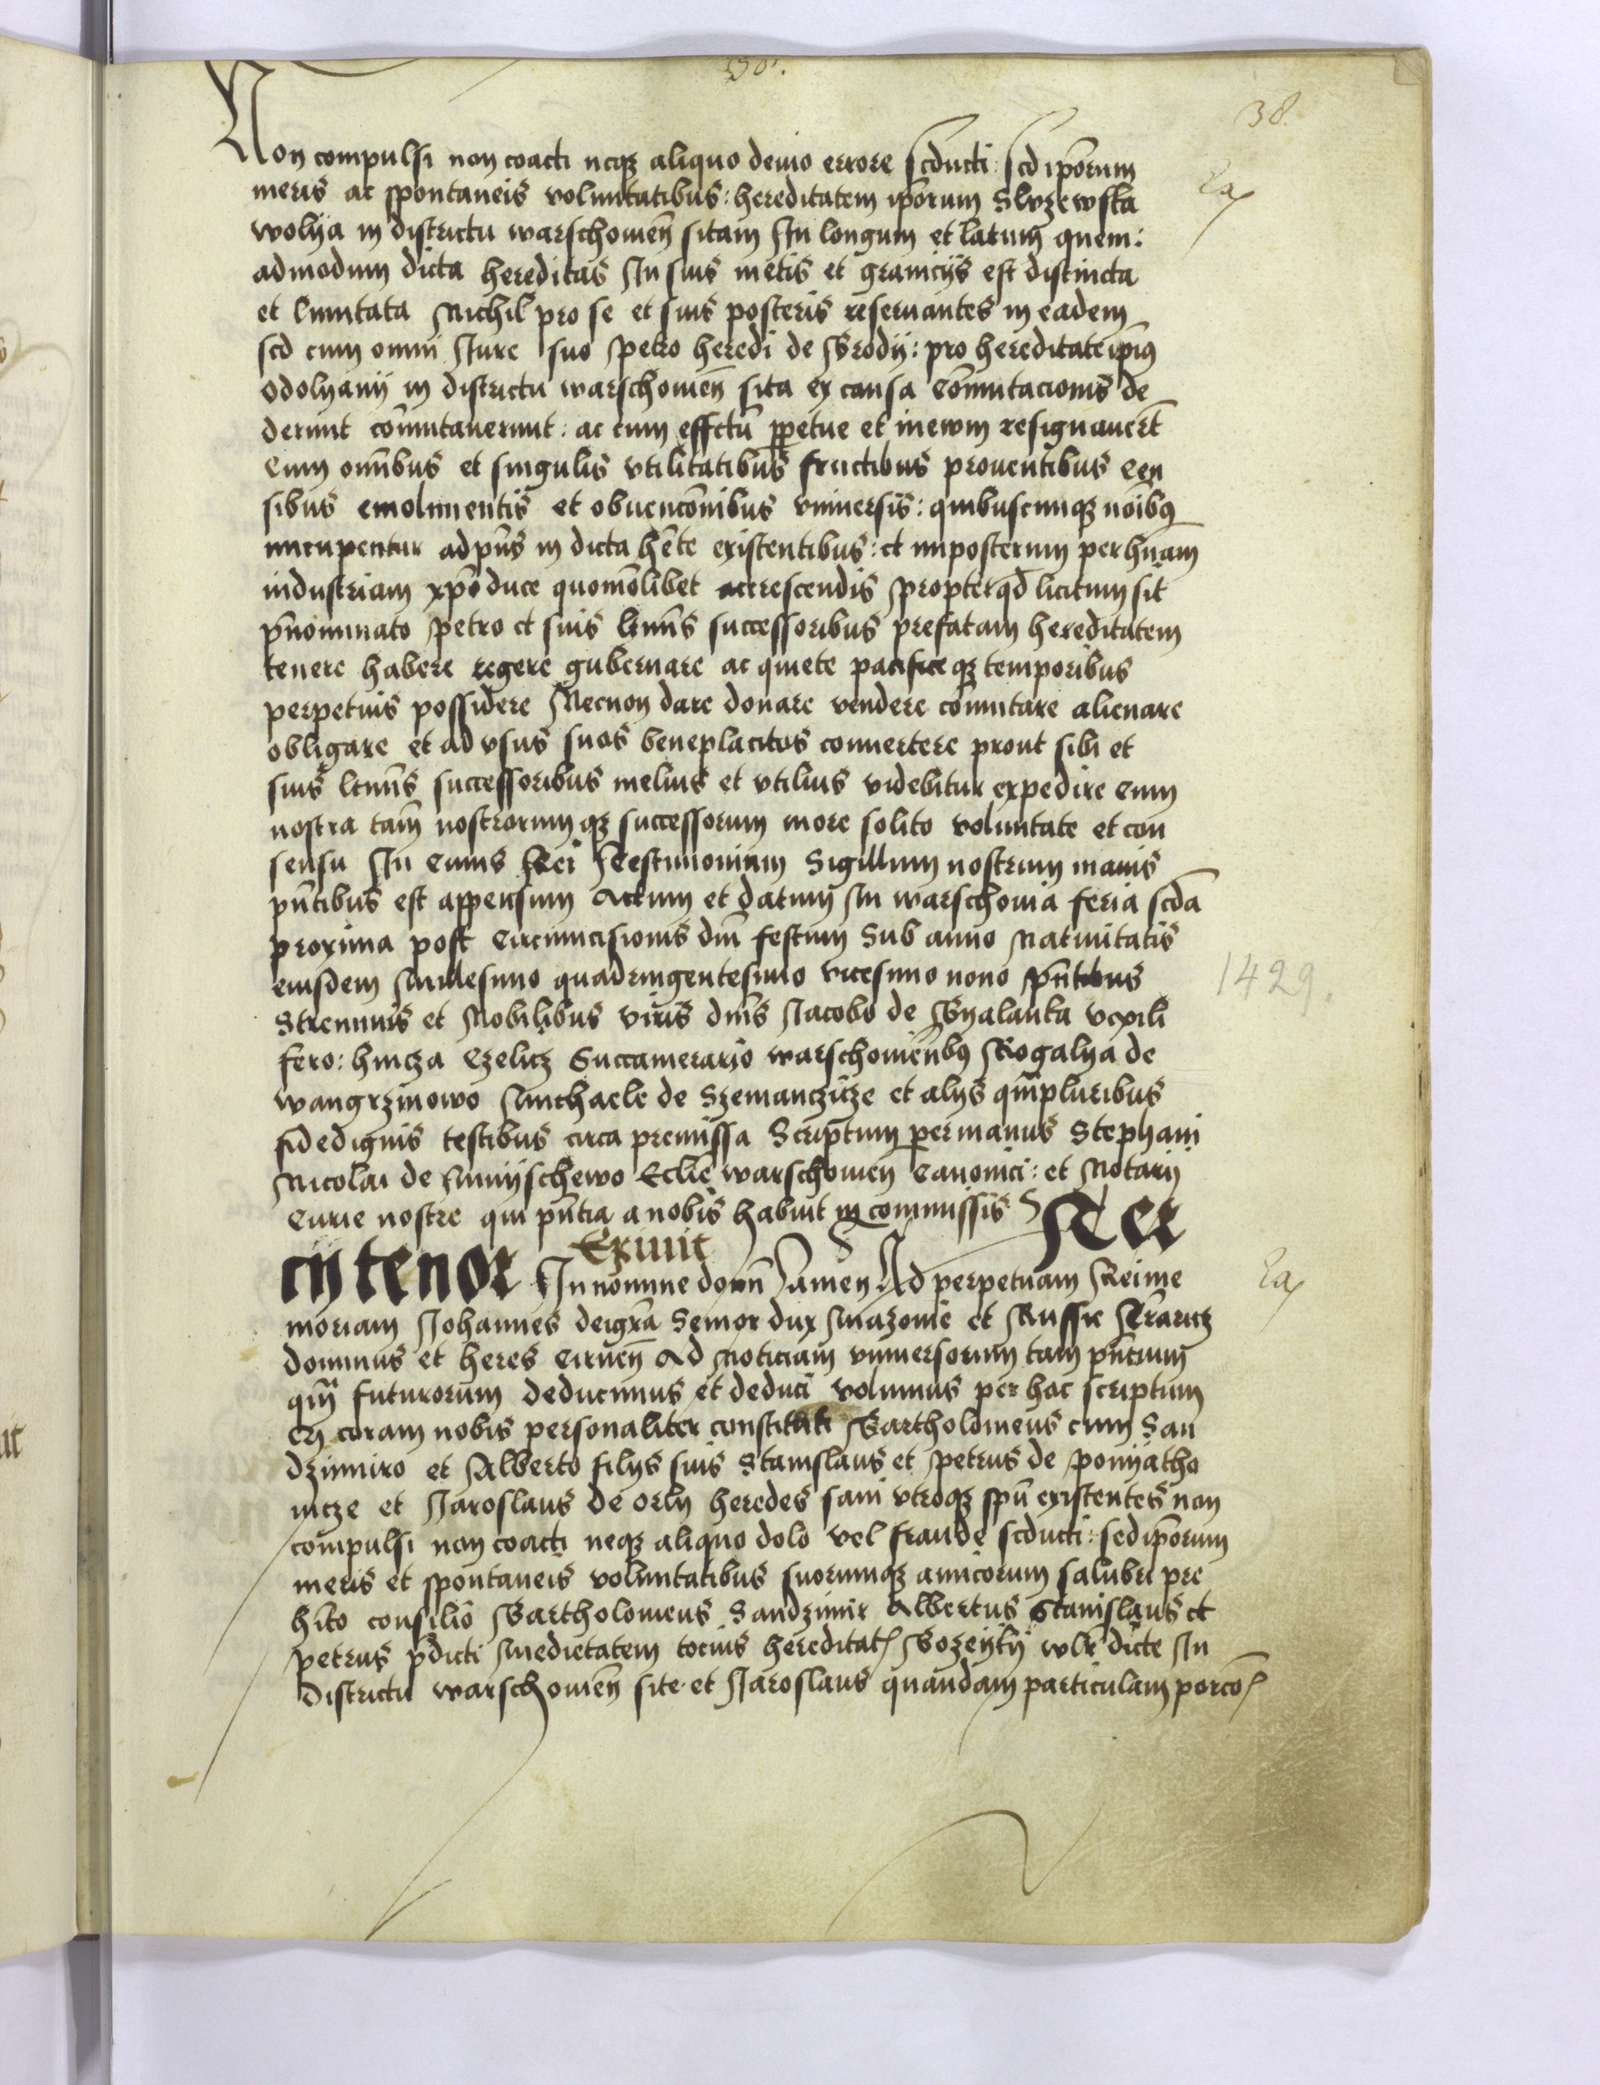 38.
Non compulsi non coacti neqz aliquo devio errore seducti : sed ip̄orum
meris ac spontaneis voluntatibus : hereditatem ip̄orum Sluzewska
wolya in districtu warschouien̄ sitam In longum et latum quem :
admodum dicta hereditas In suis metis et graniciis est distincta
et limitata Nichil pro se et suis posteris reseruantes in eadem
sed cum omni Iure suo Petro heredi de Brody : pro hereditate ip̄ius
Odolyany in districtu warschouien̄ sita ex causa Com̄utacionis de
derunt com̄utauerunt : ac cum effectu ꝑpetue et in ewm resignauer̄t
Cum om̄ibus et singulis vtilitatibus fructibus prouentibus Cen
sibus emolimentis et obuenc̄onibus vniuersis : quibuscumqz no͞ibꝯ
nuncupentur ad pn̄s in dicta he͞te existentibus : et imposterum per hu͞nam
industriam xp̄o duce quomo͞libet accrescendis Propter qd̄ licitum sit
p̄nominato Petro et suis l͞timis successoribus prefatam hereditatem
tenere habere regere gubernare ac quiete pacifice qz temporibus
perpetuis possidere Necnon dare donare vendere com̄utare alienare
obligare et ad vsus suos beneplacitos conuertere prout sibi et
suis l͞timis successoribus melius et vtilius videbitur expedire Cum
nostra tam̄ nostrorumqz successorum more solito voluntate et con
sensu In Cuius Rei Testimonium Sigillum nostrum maius
pn̄tibus est appensum Actum et datum In warschouia feria sc͞da
proxima post Circumcisionis dn̄i festum Sub anno Natiuitatis
eiusdem Millesimo quadringentesimo vicesimo nono Pn̄tibus
1429.
Strennuis et Nobilibus viris dn̄is Jacobo de Byalanka vexili
fero : hincza Czelicz Succamerario warschouien̄bꝯ Rogalya de
wangrzinowo Michaele de Szemanczicze et alys qm̄pluribus
fidedignis testibus circa premissa Scriptum per manus Stephani
Nicolai de Mnyschewo Ecl͞ie warschouien̄ Canonici : et Notarii
Curie nostre qui pn̄tia a nobis habuit in commissis Ter
cii tenor Exiuit In nomine domī Amen Ad perpetuam Rei me
moriam Johannes dei gr̄a Senior dux Mazouie et Russie Trar̄icz
dominus et heres Ciruen̄ Ad Noticiam vniuersorum tam pn̄cium
qm̄ futurorum deducimus et deduci volumus per hoc scriptum
Q coram nobis personaliter constituti Bartholomeus cum San
dzimiro et Alberto filys suis Stanislaus et Petrus de Ponyatho
wicze et Jaroslaus de Orly heredes sani vtroqz spū existentes non
compulsi non coacti neqz aliquo dolo vel fraude seducti : sed ip̄orum
meris et spontaneis voluntatibus suorumqz amicorum salubri pre
hi͞to consilio Bartholomeus Sandzimir Albertus Stanislaus et
Petrus p̄dicti Medietatem tocius hereditat̄ Bozeyky wlr̄ dicte In
districtu warschouien̄ site et Jaroslaus quandam particulam porco͞